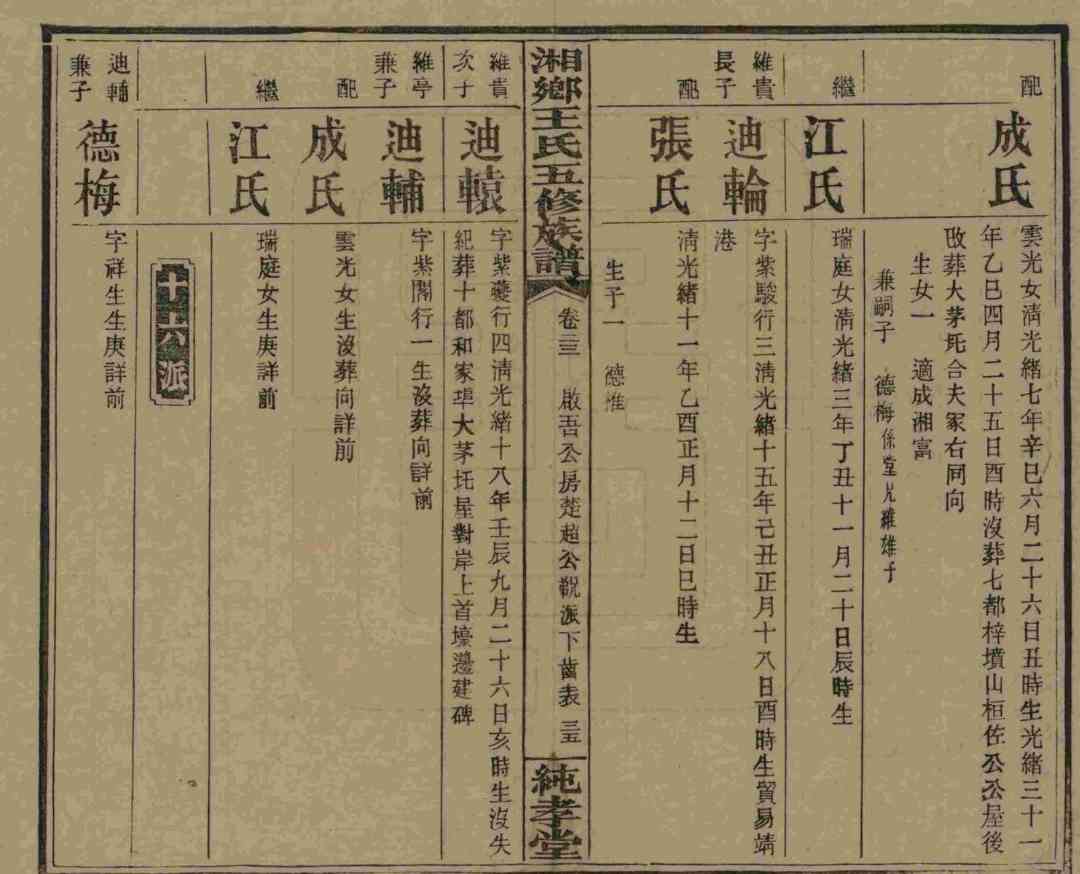 配
成氏
雲光女清光緒七年辛巳六月二十六日丑時生光緒三十一
年乙巳四月二十五日酉時沒葬七都梓墳山桓佐公公屋後
改葬大茅坵合夫冢右同向
生女一 適成湘富
兼嗣子 德梅係堂兄維雄子
繼
江氏
瑞庭女清光緒三年丁丑十一月二十日辰時生
維貴
長子
迪輪
字紫駿行三清光緒十五年己丑正月十八日酉時生貿易靖
港
配
張氏
清光緒十一年乙酉正月十二日巳時生
生子一 德惟
湘鄉王氏五修族譜
卷三三 啟吾公房楚超公觀派下齒表 三五
純孝堂
維貴
次子
迪轅
字紫夔行四清光緒十八年壬辰九月二十六日亥時生沒失
紀葬十都和家埠大茅坵星對岸上首壕邊建碑
維亭
兼子
迪輔
字紫閣行一生沒葬向詳前
配
成氏
雲光女生沒葬向詳前
繼
江氏
瑞庭女生庚詳前
十六派
迪輔
兼子
德梅
字祥生生庚詳前